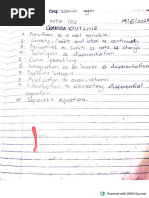 MTH 102
19/6/2023
COURSE OUTLINE
1. Functions of a real variable.
2. Graphs, limits and idea of continuity
3. Derivatives as limits as rate of change
4. Techniques of differentiation
5. Curve sketching
6. Integration as an inverse of differentiation
7. Definite integrals
8. Application to areas, volumes
9. Introduction to elementary differential equation
10. Separable equations.
Scanned with CamScanner